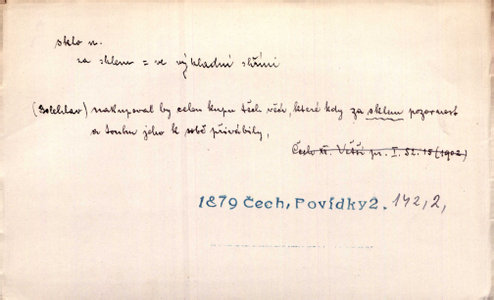 sklo n.
za sklem = ve výkladní skříni
(Boleslav) nakupoval by celou kupu těch věcí, které kdy za sklem pozornost
a touhu jeho k sobě přivábily,
Čech Větší pr. I. St. 15 (1902)
1879 Čech, Povídky 2. 142, 2,